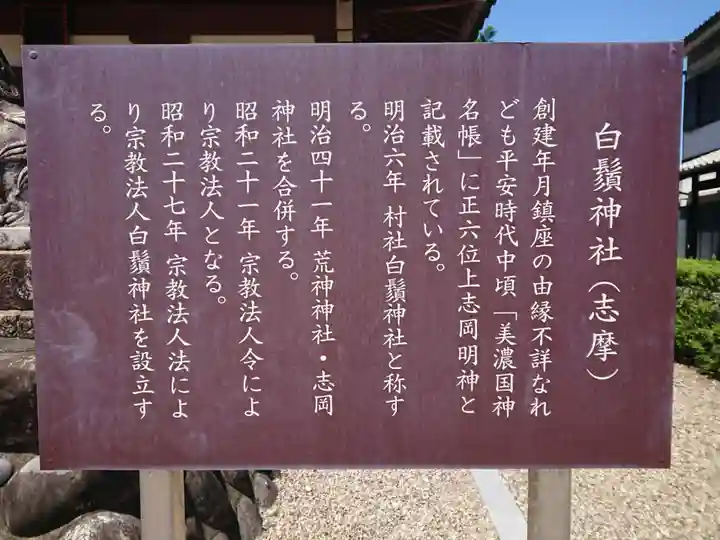 白鬚神社(志摩)
創建年月鎮座の由縁不詳なれ
ども平安時代中頃「美濃国神
名帳」に正六位上志岡明神と
記載されている。
明治六年 村社白鬚神社と称す
る。
明治四十一年 荒神神社・志岡
神社を合併する。
昭和二十一年 宗教法人令によ
り宗教法人となる。
昭和二十七年 宗教法人法によ
り宗教法人白鬚神社を設立す
る。